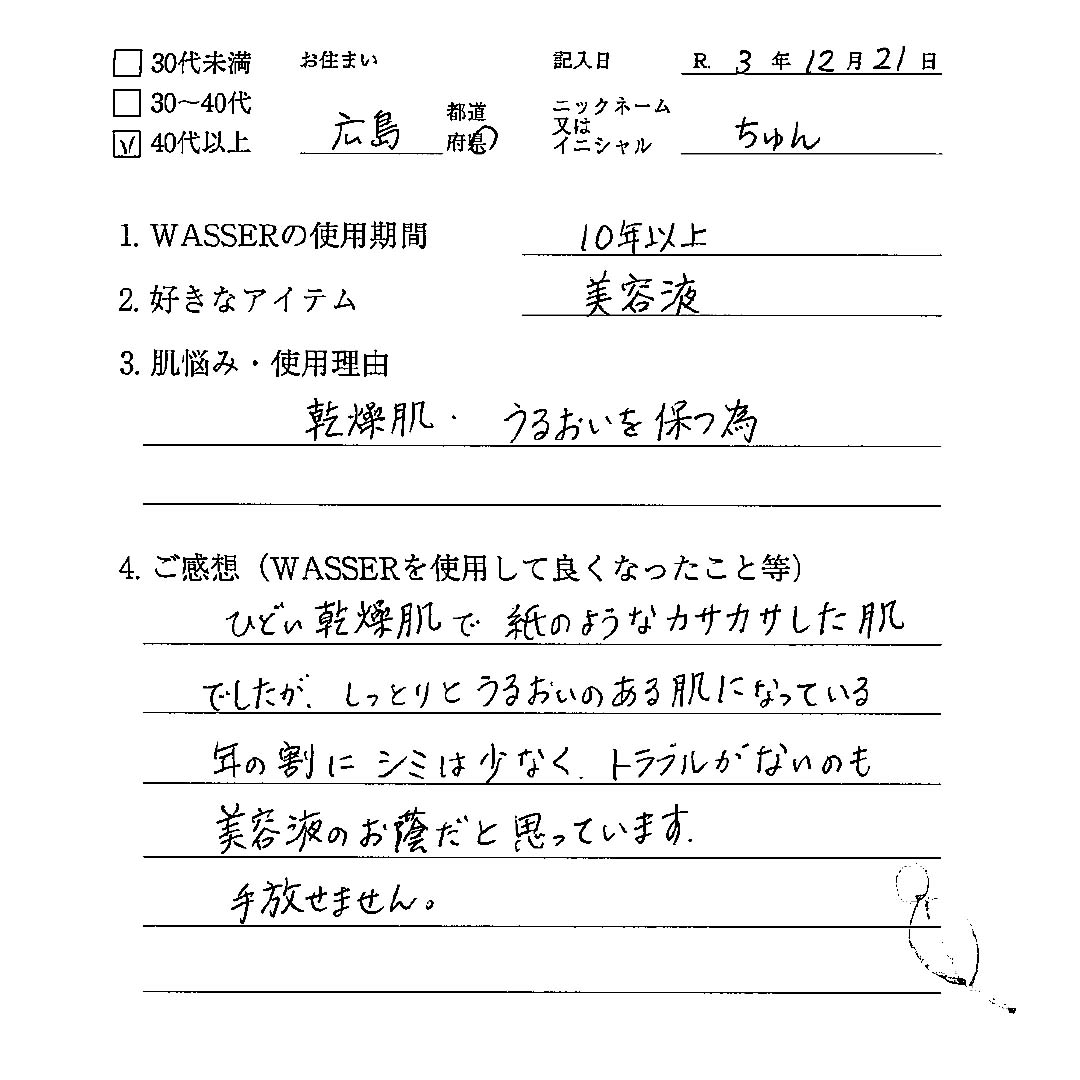 □ 30代未満 お住まい 記入日 R. 3 年 12 月 21 日
□ 30〜40代 広島 都道府県 ニックネーム又はイニシャル ちゅん
☑ 40代以上
1. WASSERの使用期間 10年以上
2. 好きなアイテム 美容液
3. 肌悩み・使用理由
乾燥肌・ うるおいを保つ為
4. ご感想（WASSERを使用して良くなったこと等）
ひどい乾燥肌で 紙のようなカサカサした肌
でしたが、しっとりとうるおいのある肌になっている
年の割に シミは少なく、トラブルがないのも
美容液のお蔭だと思っています.
手放せません。